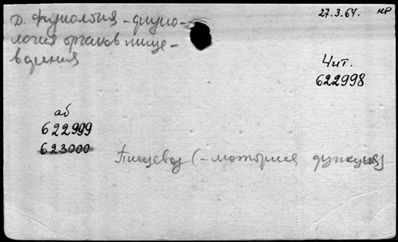 Д. Физиология - физио-
логия органов пище-
варения
27.3.64. нр
Чит.
622998
аб
622999
623000
Пищевод (- моторная функция)